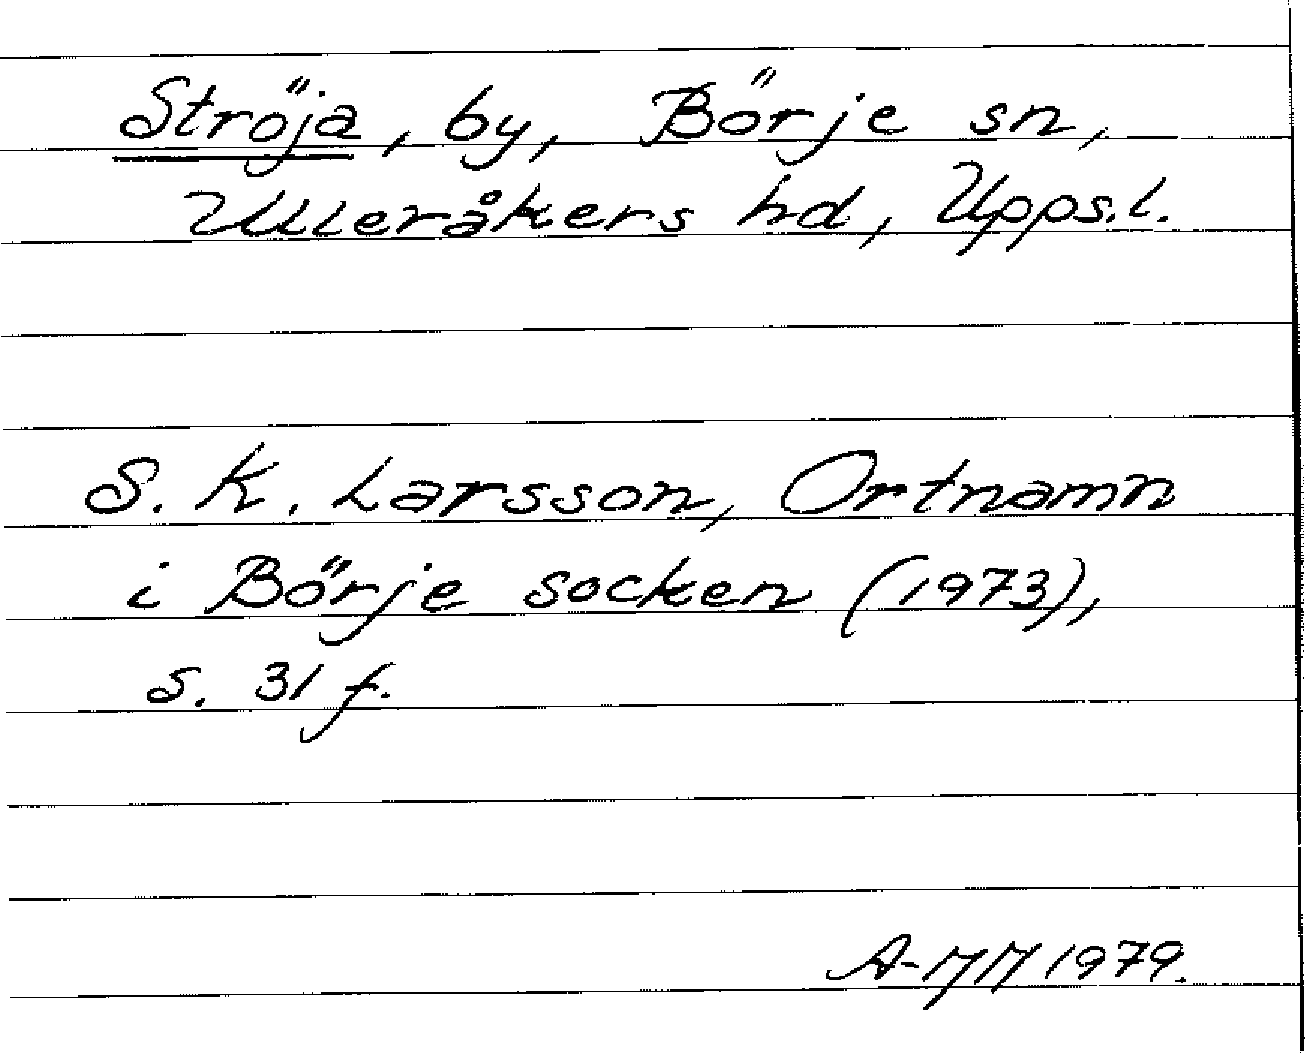 Ströja, by, Börje sn,
Ulleråkers hd, Upps.l.
S. K. Larsson, Ortnamn
i Börje socken (1973),
s. 31 f.
A-MM 1979.